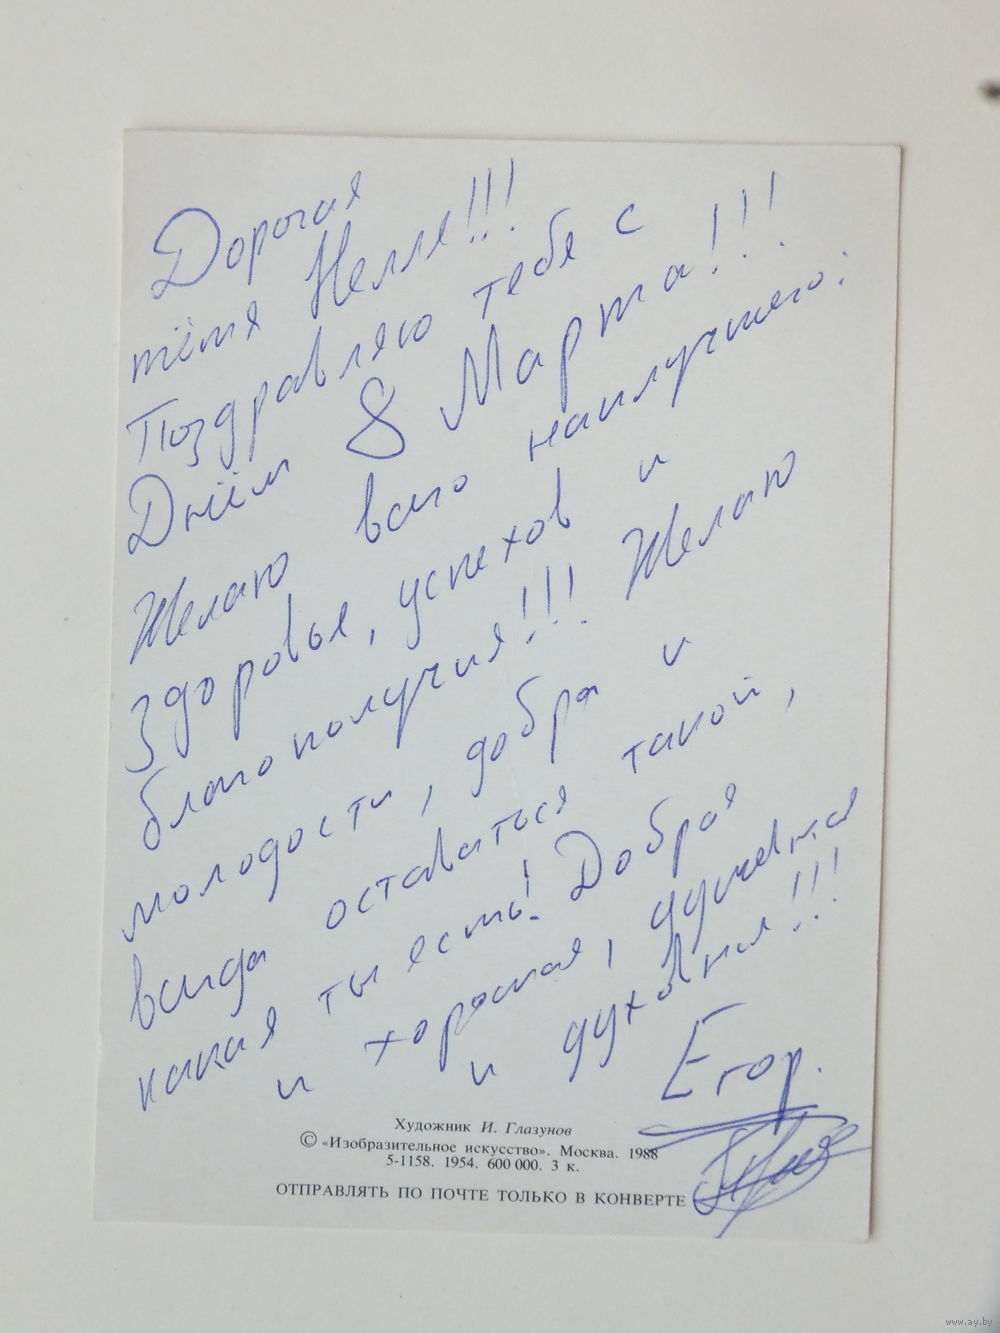 Дорогая
тётя Нелля!!!
Поздравляю тебя с
Днём 8 Марта!!!
Желаю всего наилучшего:
здоровья, успехов и
благополучия!!! Желаю
молодости, добра и
всегда оставаться такой,
какая ты есть! Добрая
и хорошая, душевная
и духовная!!!
Егор.
Художник И. Глазунов
© «Изобразительное искусство». Москва. 1988
5-1158. 1954. 600 000. 3 к.
ОТПРАВЛЯТЬ ПО ПОЧТЕ ТОЛЬКО В КОНВЕРТЕ
www.ay.by